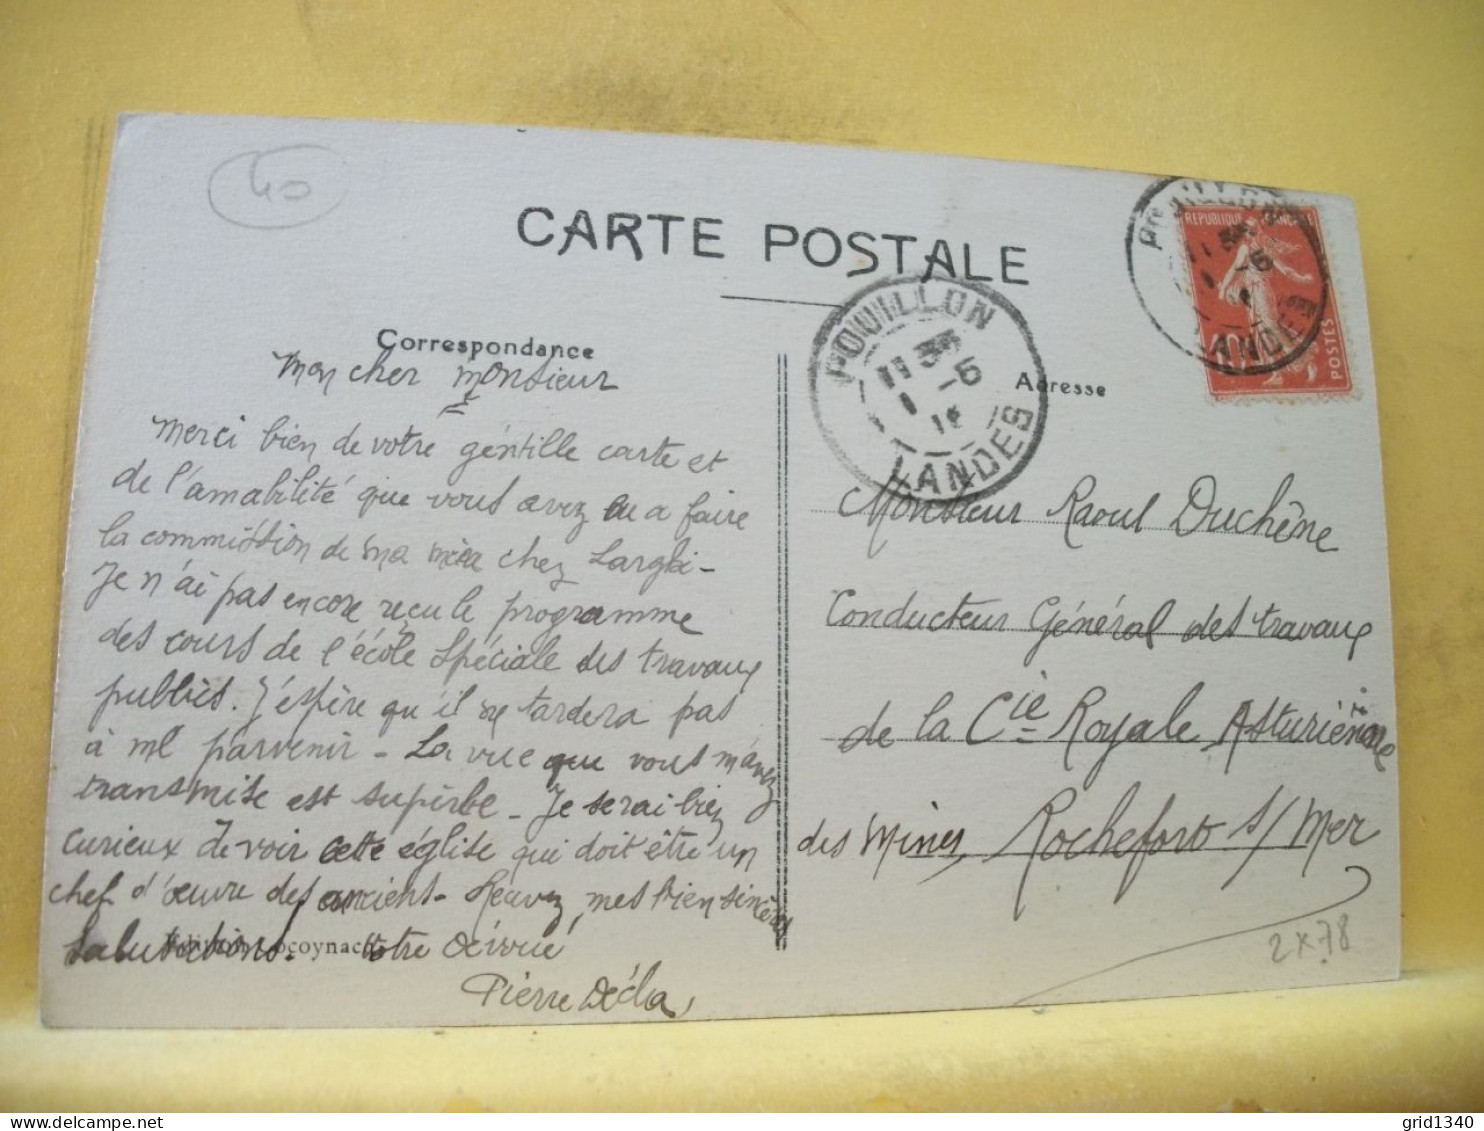 40
CARTE POSTALE
Correspondance
Adresse
POUILLON
11 35
1 -5
LANDES
POUILLON
11 35
1 -5
LANDES
REPUBLIQUE FRANÇAISE
POSTES
Mon cher monsieur
Merci bien de votre gentille carte et
de l'amabilité que vous avez eu a faire
la commission de ma mère chez
Je n'ai pas encore reçu le programme
des cours de l'école spéciale des travaux
publics. J'espère qu'il ne tardera pas
à me parvenir - La vue que vous m'avez
transmise est superbe - Je serai bien
curieux de voir cette église qui doit être un
chef d'œuvre des anciens - Recevez, mes bien sincères
salutations. votre dévoué
Pierre
Monsieur Raoul Duchêne
Conducteur Général des travaux
de la Cie Royale Asturienne
des Mines, Rochefort s/ Mer
2x78
grid1340